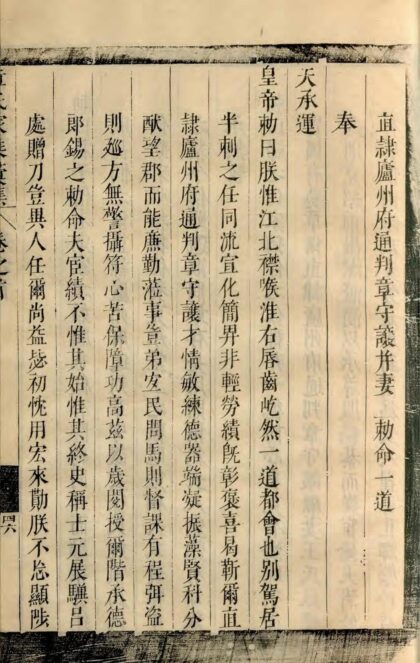 直隸廬州府通判章守讓并妻 勅命一道
奉
天承運
皇帝勅曰朕惟江北襟喉淮右唇齒屹然一道都會也別駕居
半刺之任同流宣化簡畀非輕勞績旣彰褒喜曷靳爾直
隸廬州府通判章守讓才情敏練德器端凝振藻賢科分
猷望郡而能㢘勤蒞事豈弟安民問馬則督課有程弭盜
則廵方無警攝符心苦保障功高茲以歲閱授爾階承德
郎錫之勅命夫宦績不惟其始惟其終史稱士元展驥呂
處贈刀豈異人任爾尚益毖初忱用宏來勩朕不忘顯陟
卷之首
四六